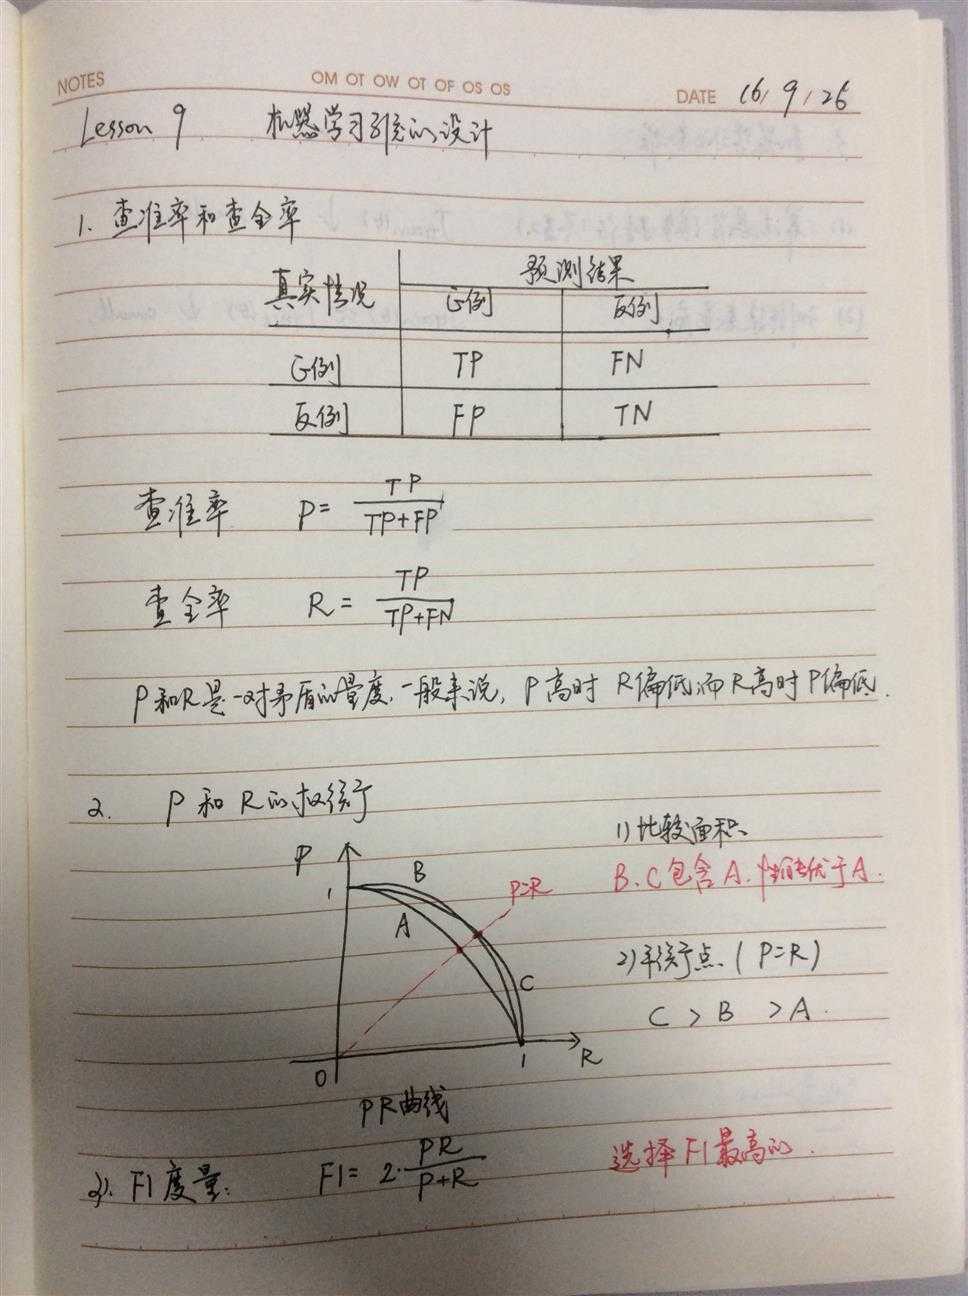 NOTES OM OT OW OT OF OS OS DATE 16/9/26
Lesson 9 机器学习系统的设计
1. 查准率和查全率
真实情况 预测结果
正例 反例
正例 TP FN
反例 FP TN
查准率 P = TP/(TP+FP)
查全率 R = TP/(TP+FN)
P和R是一对矛盾的量度,一般来说,P高时 R偏低,而R高时P偏低.
2. P和R的权衡
1) 比较面积
B、C包含A.性能优于A.
2) 平衡点 (P=R)
C > B > A.
P
1
B
P=R
A
C
0
1
R
PR曲线
3). F1度量: F1 = 2·PR/(P+R) 选择F1最高的.